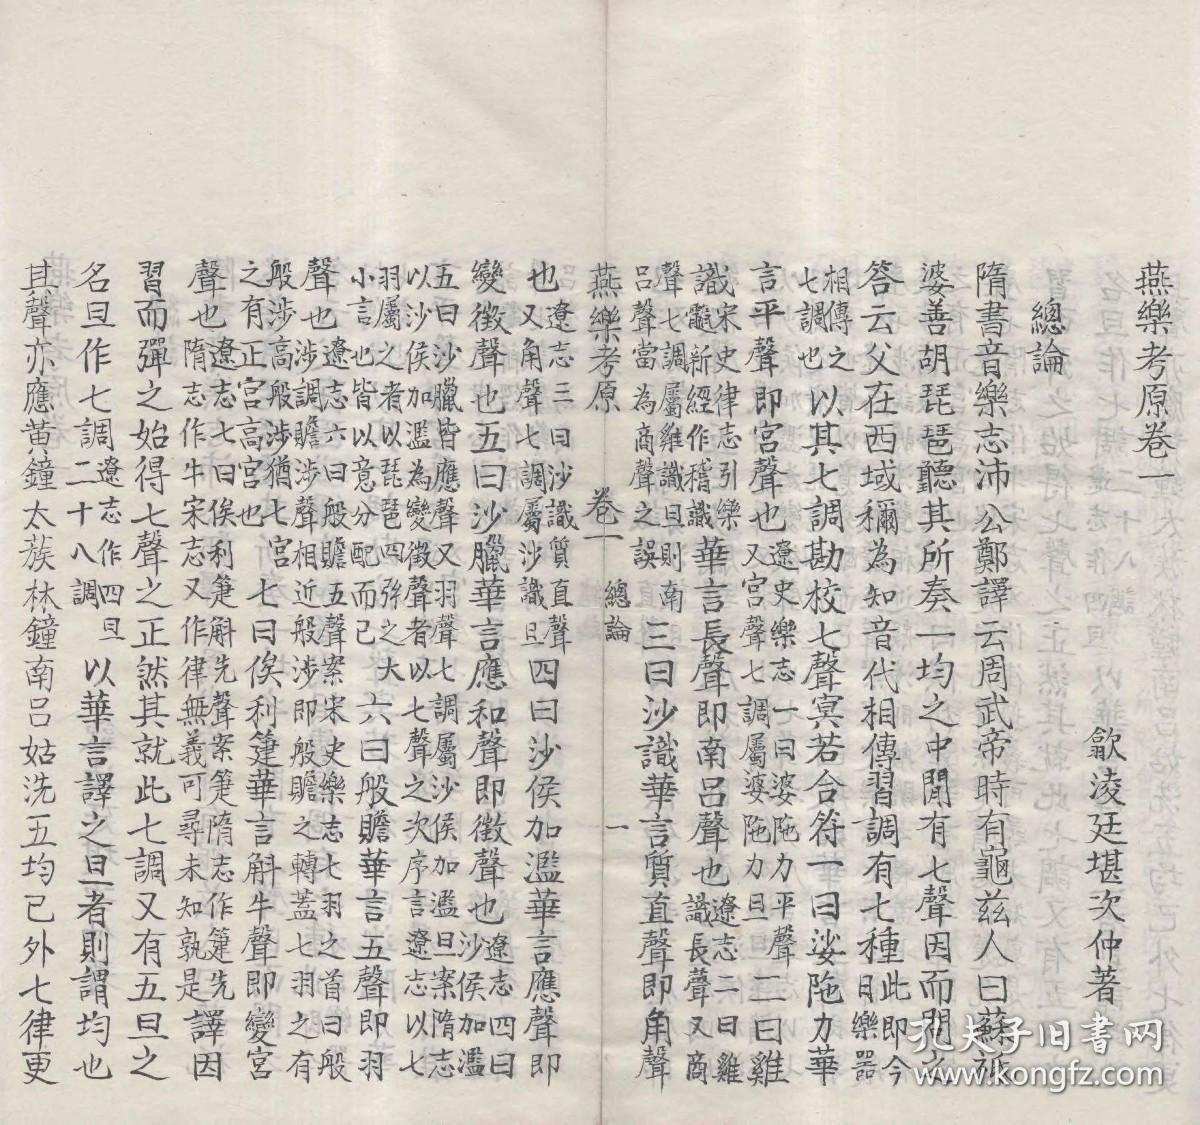 燕樂考原卷一
歙淩廷堪次仲著
總論
隋書音樂志沛公鄭譯云周武帝時有龜茲人曰蘇祗
婆善胡琵琶聽其所奏一均之中閒有七聲因而問之
答云父在西域稱為知音代相傳習調有七種此即今日樂器
相傳之七調也以其七調勘校七聲冥若合符一曰娑陁力華
言平聲即宮聲也遼史樂志一曰婆陁力平聲又宮聲七調屬婆陁力旦二曰雞
識宋史律志引樂髓新經作稽識華言長聲即南呂聲也遼志二曰雞識長聲又商
聲七調屬雞識旦則南呂聲當為商聲之誤三曰沙識華言質直聲即角聲
燕樂考原 卷一 總論 一
也遼志三曰沙識質直聲又角聲七調屬沙識旦四曰沙侯加濫華言應聲即
變徵聲也五曰沙臘華言應和聲即徵聲也遼志四曰沙侯加濫
五曰沙臘皆應聲又羽聲七調屬沙侯加濫旦案隋志以沙侯加濫為變徵聲者以七聲之次序言遼志以七
羽屬之者以琵琶四弦之大小言也皆以意分配而已六曰般贍華言五聲即羽
聲也遼志六曰般贍五聲案宋史樂志七羽之首曰般涉調贍涉聲相近般涉即般贍之轉蓋七羽之有
般涉高般涉猶七宮之有正宮高宮也七曰俟利箑華言斛牛聲即變宮
聲也遼志七曰俟利箑斛先聲案箑隋志作箑先隋志作牛宋志又作律無義可尋未知孰是譯因
習而彈之始得七聲之正然其就此七調又有五旦之
名旦作七調遼志作四旦二十八調以華言譯之旦者則謂均也
其聲亦應黃鐘太蔟林鐘南呂姑洗五均已外七律更
孔夫子旧书网
www.kongfz.com